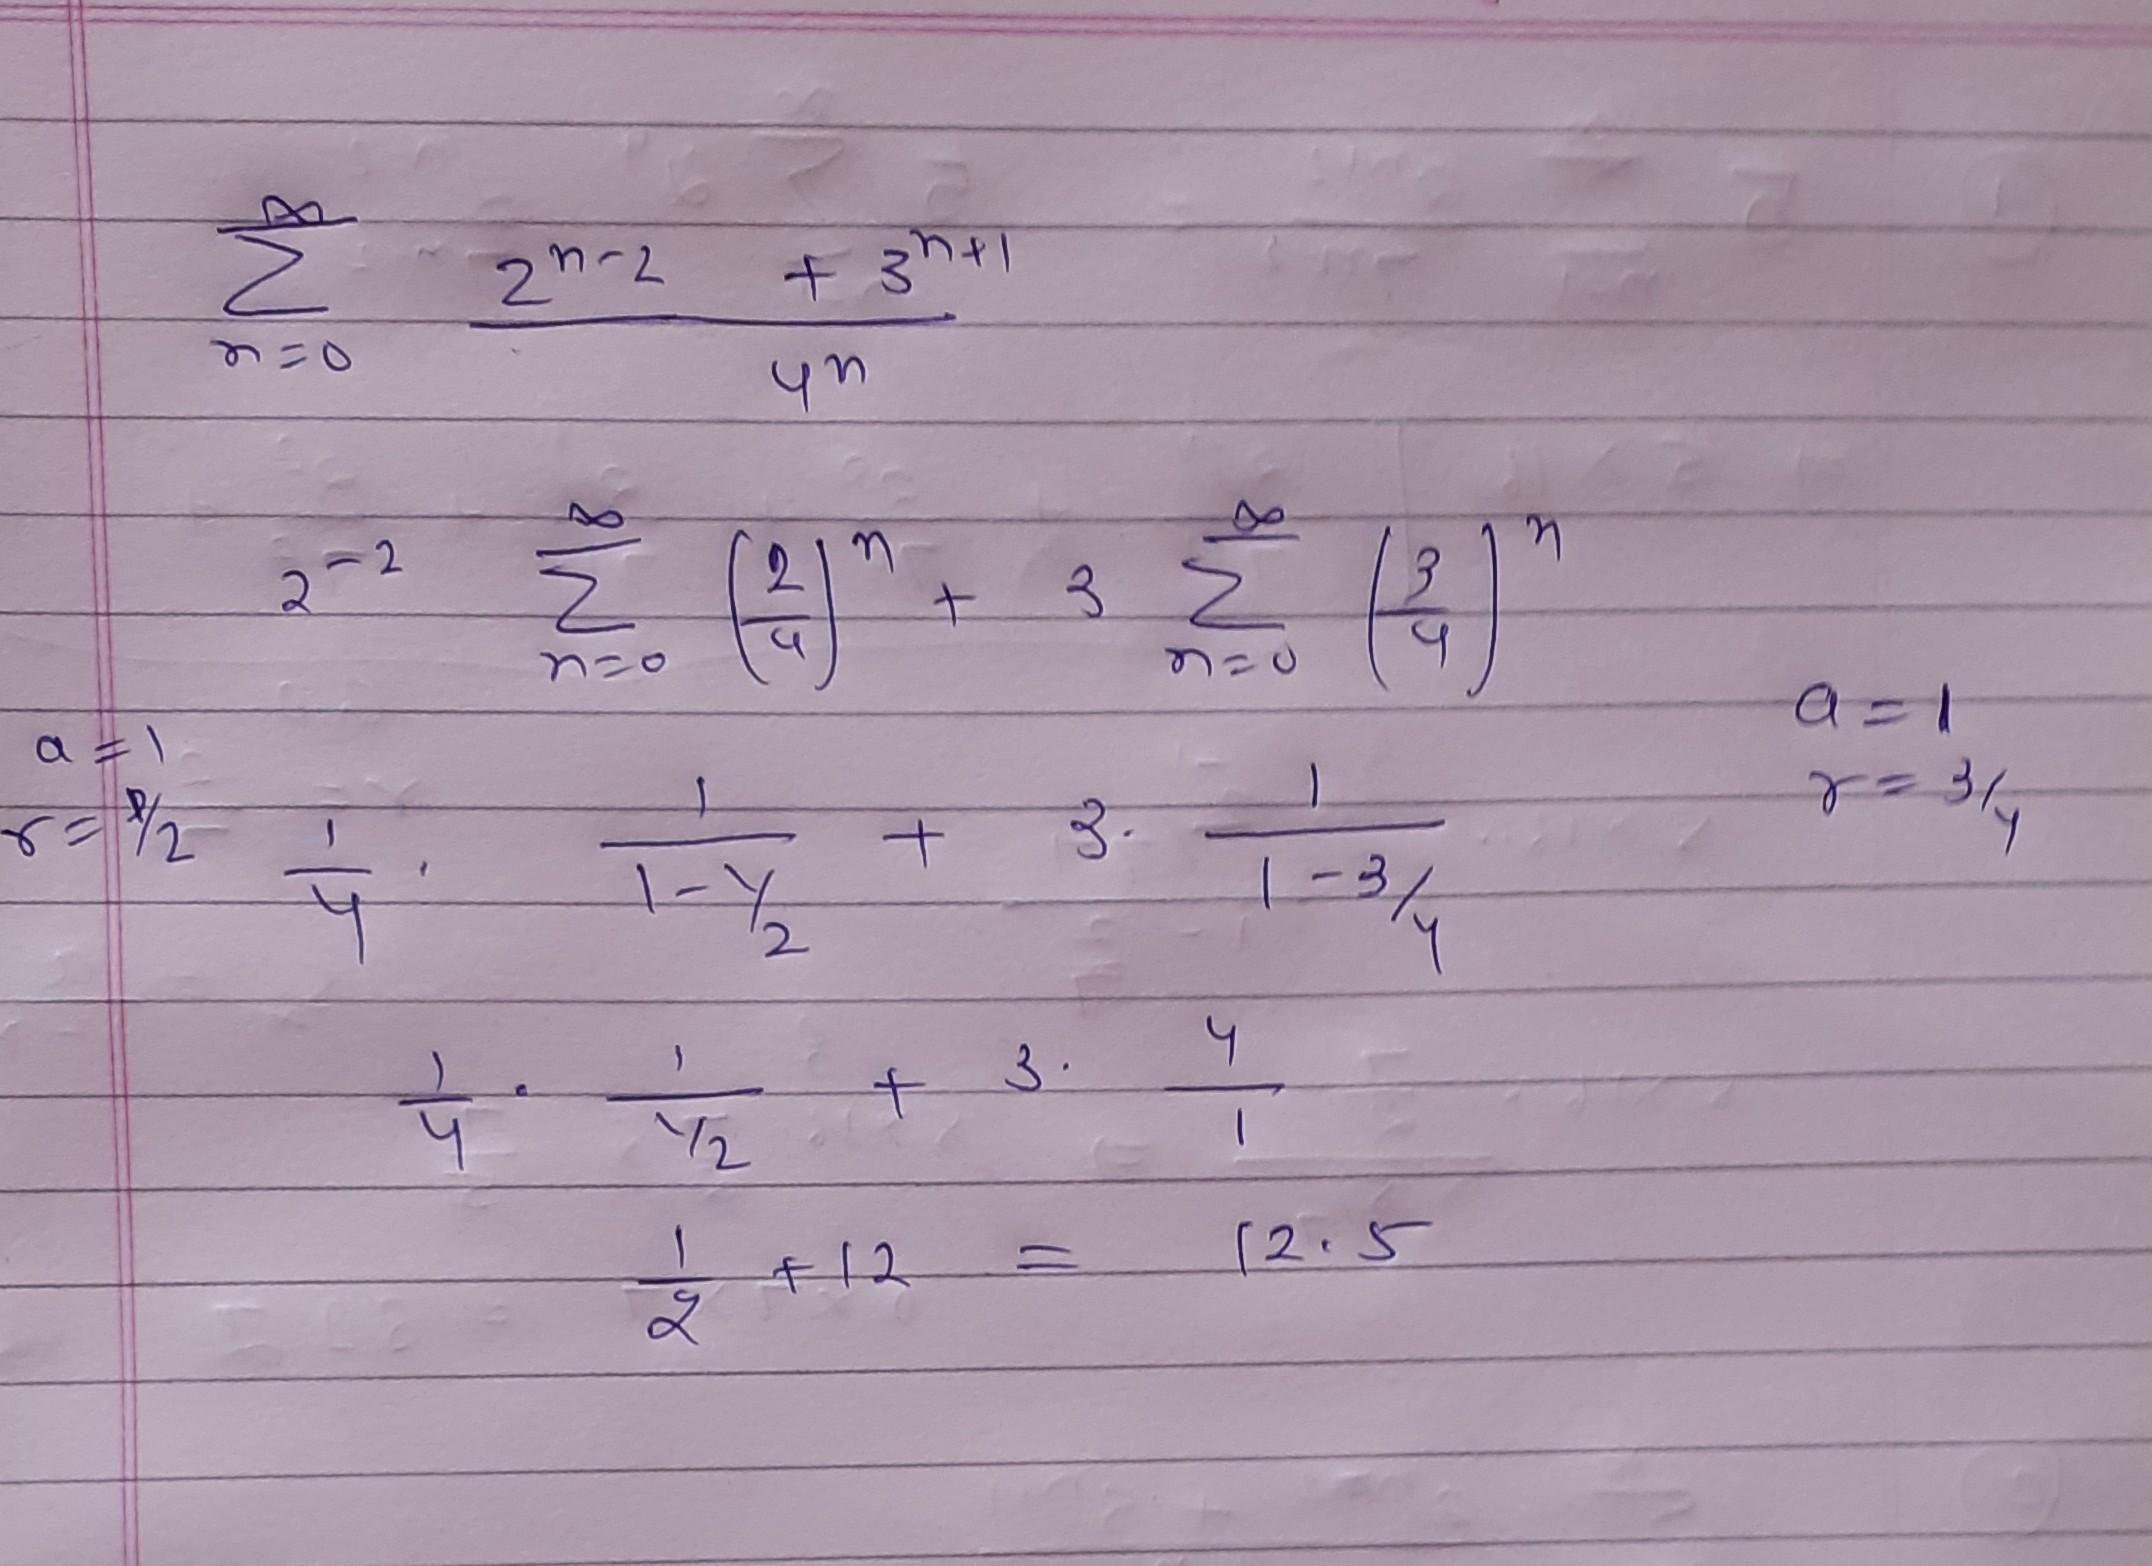 ∞
∑ 2^{n-2} + 3^{n+1}
n=0 4^n
2^{-2} ∞∑n=0 (2/4)^n + 3 ∞∑n=0 (3/4)^n
a=1
r=1/2
a=1
r=3/4
1/4 · 1/(1-1/2) + 3· 1/(1-3/4)
1/4 · 1/(1/2) + 3· 4/1
1/2 +12 = 12.5